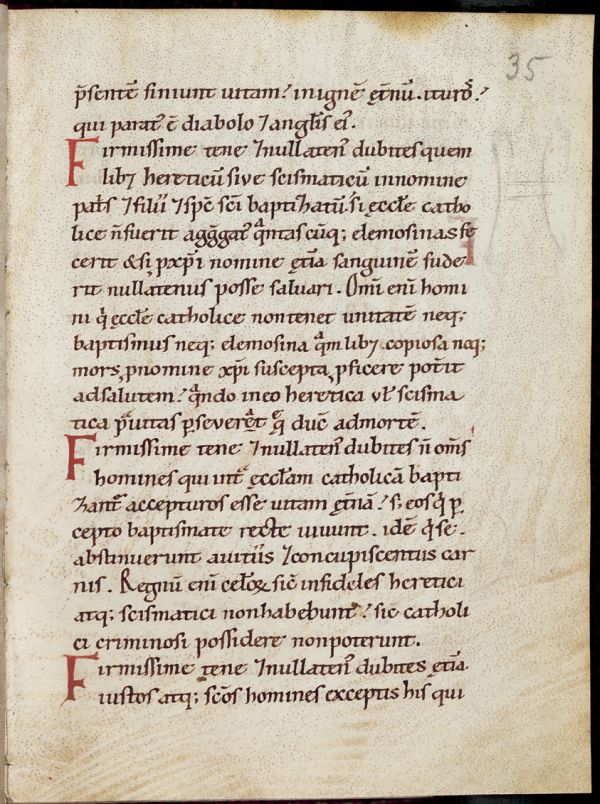 35
p̄sentē finiunt uitam! in ignē ęt̄nū. ituros̄!
qui parat᷒ ē diabolo ⁊ angl̄is ei᷒.
Firmissime tene ⁊nullaten᷒ dubites quem
lib⁊ hereticū sive scismaticū innomine
patr̄s ⁊filii ⁊sp̄c sc̄i baptizatū. si ęccl̄e catho
lice n̄fuerit aggregat᷒ q̄ntascūq; elemosinas fe
cerit & si, p xp̄i nomine ęt̄ia sanguinē fude
rit nullatenus posse saluari. Om̄i eni hom̄i
ni q̄ ęccl̄e catholice non tenet unitatē neq;
baptismus neq; elemosina q̄m lib⁊ copiosa neq;
mors, pnomine xp̄i suscepta, pficere pot̄it
adsalutem! q̄ndo in eo heretica ul̄ scisma
tica p̄uitas p̱seuerat̄ q̄ duc̄ admortē.
Firmissime tene ⁊nullaten᷒ dubites n̄ om̄s
homines qui int̄ ęccl̄am catholicā bapti
zant᷒ accepturos esse uitam ęt̄nā! s; eos q̄ p̱
cepto baptismate recte uiuunt. idē q̄ se
abstinuerunt auitiis ⁊concupiscentiis car
nis. Regnū eni celoꝝ sic̄ infideles heretici
atq; scismatici nonhabebunt! sic catholi
ci criminosi possidere nonpoterunt.
Firmissime tene ⁊nullaten᷒ dubites ęt̄ia
iustos atq; sc̄os homines exceptis his qui